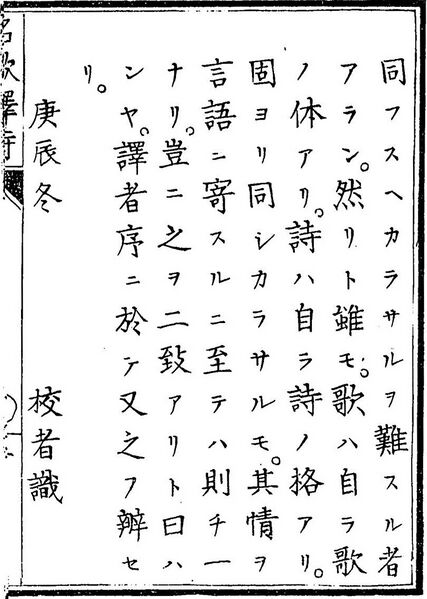 同フスヘカラサルヲ難スル者
アラン。然リト雖モ。歌ハ自ラ歌
ノ体アリ。詩ハ自ラ詩ノ格アリ。
固ヨリ同シカラサルモ。其情ヲ
言語ニ寄スルニ至テハ則チ一
ナリ。豈ニ之ヲ二致アリト曰ハ
ンヤ。譯者序ニ於テ又之フ辨セ
リ。
庚辰冬　校者識